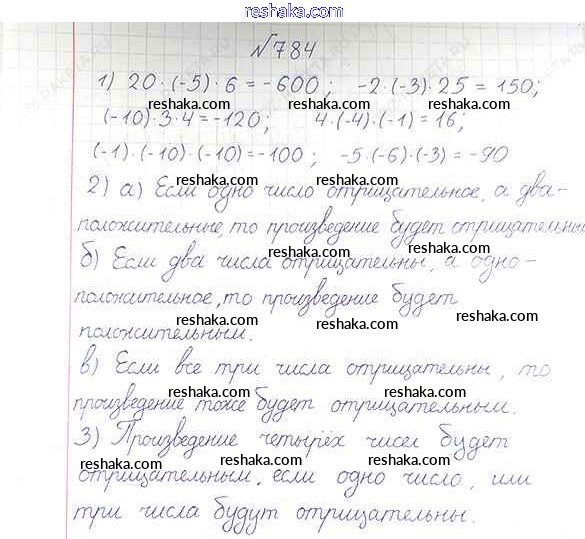 reshaka.com
№784
1) 20·(-5)·6 = -600; -2·(-3)·25 = 150;
reshaka.com reshaka.com
(-10)·3·4 = -120; 4·(-4)·(-1) = 16;
reshaka.com reshaka.com
(-1)·(-10)·(-10) = -100; -5·(-6)·(-3) = -90
reshaka.com reshaka.com
2) а) Если одно число отрицательное, а два-
reshaka.com reshaka.com
положительные, то произведение будет отрицательны
reshaka.com reshaka.com
б) Если два числа отрицательны, а одно-
reshaka.com
положительное, то произведение будет
reshaka.com reshaka.com
положительным.
в) Если все три числа отрицательны, то
reshaka.com reshaka.com
произведение тоже будет отрицательным.
reshaka.com reshaka.com
3) Произведение четырёх чисел будет
reshaka.com reshaka.com
отрицательным, если одно число, или
reshaka.com reshaka.com
три числа будут отрицательны.
reshaka.com